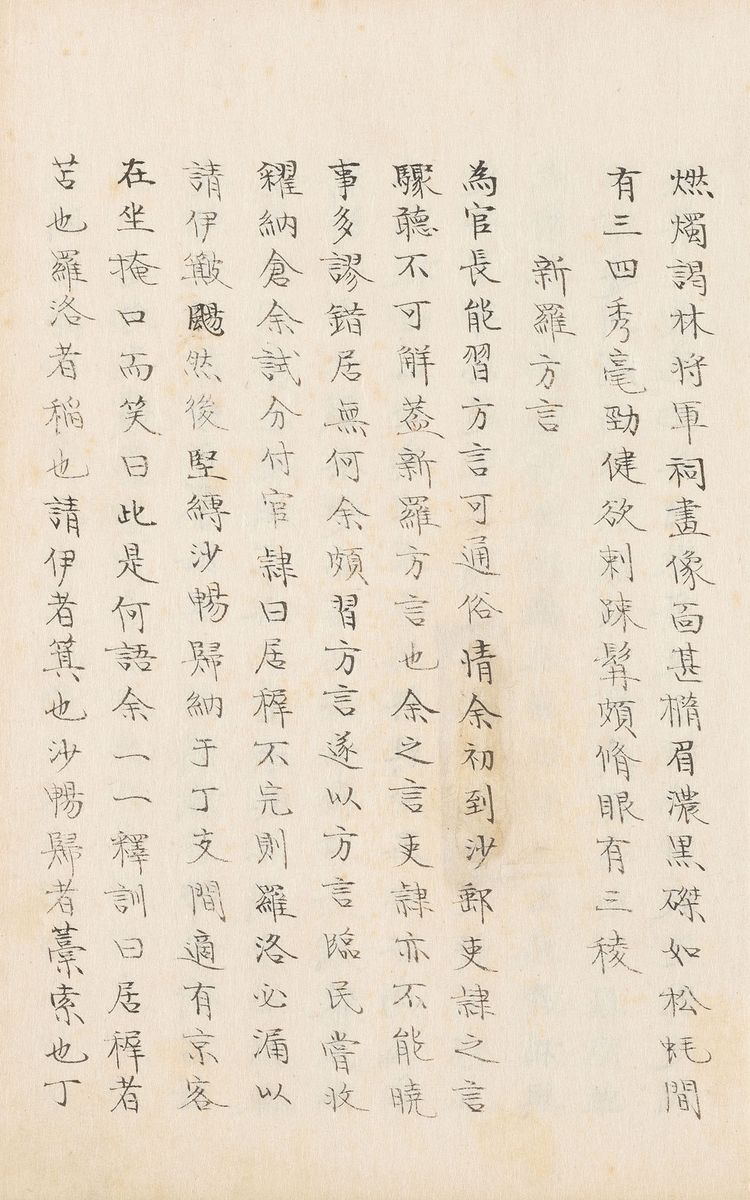 燃燭謁林將軍祠畫像面甚橢眉濃黑磔如松蚝間
有三四秀毫勁健欲刺疎髯頗脩眼有三稜
新羅方言
為官長能習方言可通俗情余初到沙郵吏隷之言
驟聽不可觧葢新羅方言也余之言吏隷亦不能曉
事多謬錯居無何余頗習方言遂以方言臨民嘗收
糴納倉余試分付官隷曰居穉不完則羅洛必漏以
請伊簸颺然後堅縛沙暢歸納于丁支間適有京客
在坐掩口而笑曰此是何語余一一釋訓曰居穉者
苫也羅洛者稲也請伊者箕也沙暢歸者藁索也丁